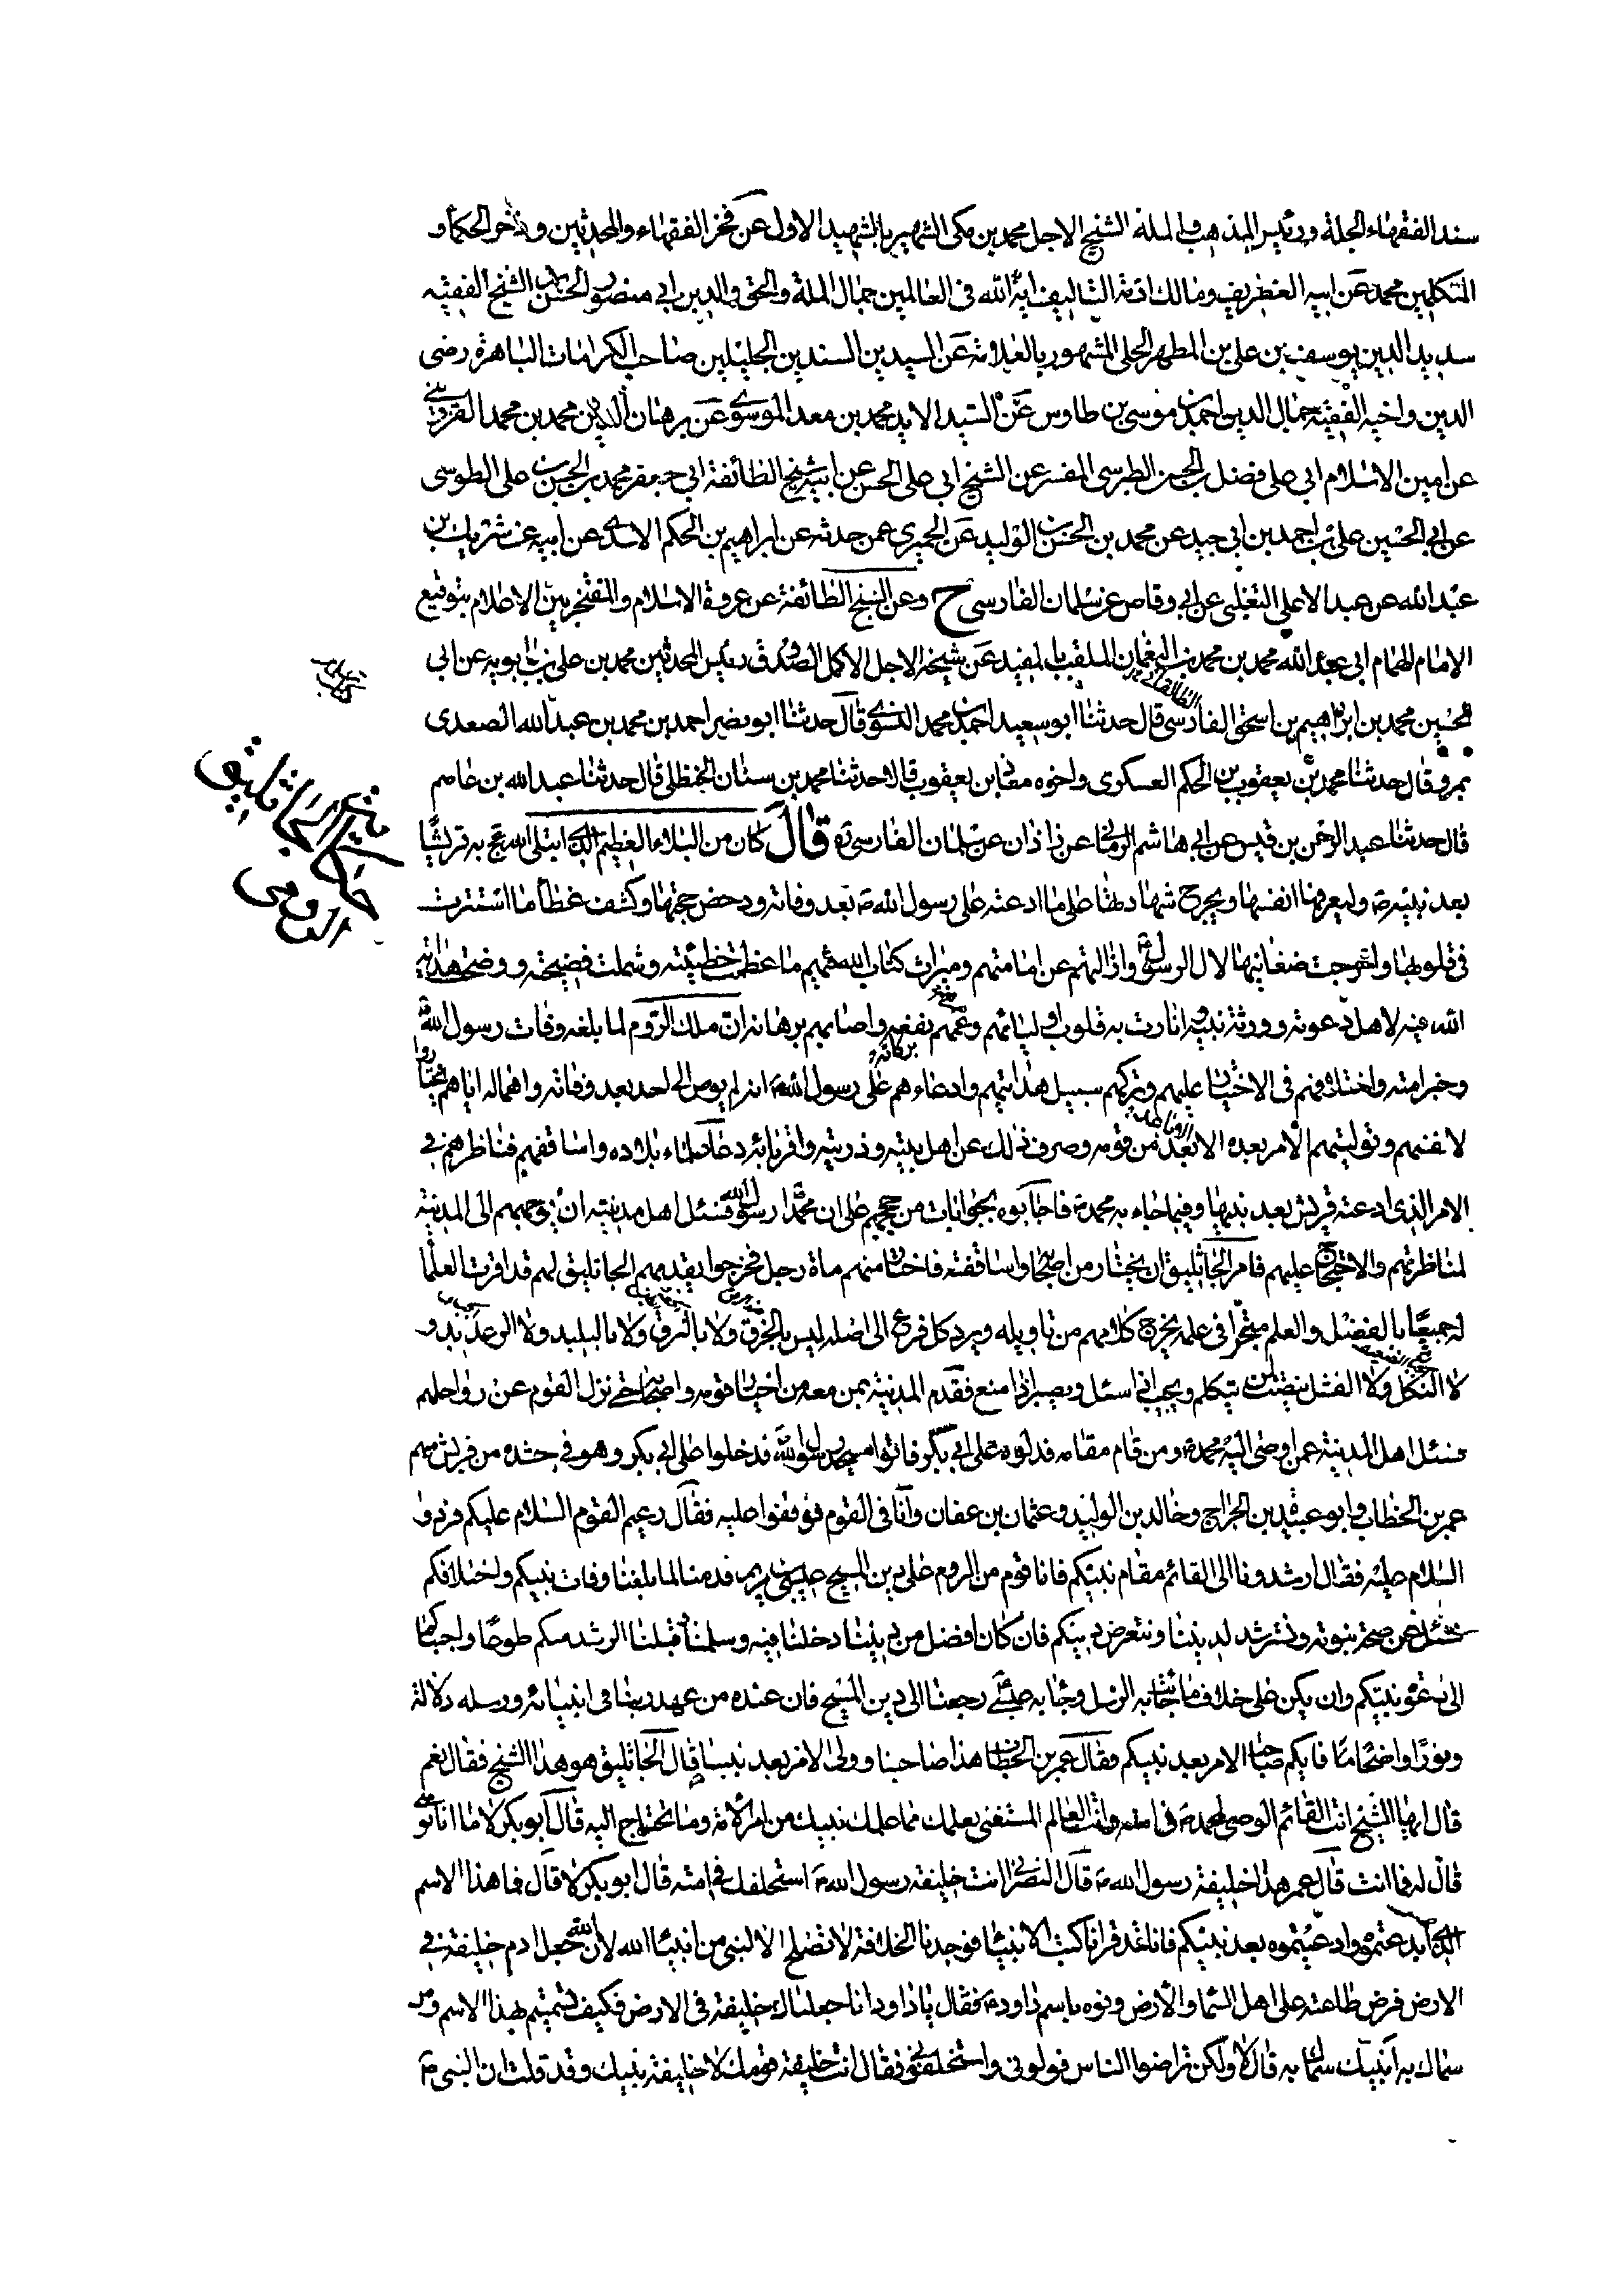 سند الفقهاء الجلة ورئيس المذهب والملة الشيخ الاجل محمد بن مكى الشهير بالشهيد الاول عن فخر الفقهاء والمحدثين وذخر الحكماء و
المتكلمين محمد عن ابيه الغطريف ومالك ازمة التاليف اية الله فى العالمين جمال الملة والحق والدين ابى منصور الحسن بن الشيخ الفقيه
سديد الدين يوسف بن على بن المطهر الحلى المشهور بالعلامة عن السيدين السندين الجليلين صاحب الكرامات الباهرة رضى
الدين واخيه الفقيه جمال الدين احمد بن موسى بن طاوس عن السيد الايد محمد بن معد الموسوى عن برهان الدين محمد بن محمد القزوينى
عن امين الاسلام ابى على فضل بن الحسن الطبرسى المفسر عن الشيخ ابى على الحسن عن ابيه شيخ الطائفة ابى جعفر محمد بن الحسن بن على الطوسى
عن ابى الحسين على بن احمد بن ابى جيد عن محمد بن الحسن بن الوليد عن الحميرى عمن حدثه عن ابراهيم بن الحكم الاسدى عن ابيه عن شريك بن
عبد الله عن عبد الاعلى التغلبى عن ابى وقاص عن سلمان الفارسى ح وعن الشيخ الطائفة عن عروة الاسلام والمفتخر بين الاعلام بتوقيع
الامام الهمام ابى عبد الله محمد بن محمد بن النعمان الملقب بالمفيد عن شيخه الاجل الاكمل الصدوق رئيس المحدثين محمد بن على بن بابويه عن ابى
الحسين محمد بن ابراهيم بن اسحق الفارسى قال حدثنا ابو سعيد احمد بن محمد النسوى قال حدثنا ابو نصر احمد بن محمد بن عبد الله الصعدى
بمرو قال حدثنا محمد بن يعقوب بن الحكم العسكرى واخوه معاذ بن يعقوب قالا حدثنا محمد بن سنان الحنظلى قال حدثنا عبد الله بن عاصم
قال حدثنا عبد الرحمن بن قيس عن ابى هاشم الرمانى عن زاذان عن سلمان الفارسى ره قال كان من البلاء العظيم الذى ابتلى الله عج به قريشا
بعد نبيه ص وليعرفها انفسها ويجرح شهادتها على ما ادعته على رسول الله ص بعد وفاته ودحض حجتها وكشف غطاء ما استترت
فى قلوبها واخرجت ضغائنها لال الرسول وازالتهم عن امامتهم وميراث كتاب الله فيهم ما عظمت خطيئته وشملت فضيحته ووضحت هداية
الله فيه لاهل دعوته وورثة نبيه وانارت به قلوب اوليائهم وعمهم نفعه واصابهم برهانه ان ملك الروم لما بلغه وفات رسول الله
بركاته
وخبر امته واختلافهم فى الاختيار عليهم وتركهم سبيل هدايتهم وادعاءهم على رسول الله ص انه لم يوص الى احد بعد وفاته واهماله اياهم يختاروا
لانفسهم وتوليتهم الامر بعده الاباعد من قومه وصرف ذلك عن اهل بيته وذريته واقربائه دعا علماء بلاده واساقفهم فناظرهم فى
الامر الذى ادعته قريش بعد نبيها وفيما جاء به محمد ص فاجابوه بجوابات من حججهم على ان محمدا رسول الله فسئل اهل مدينته ان يوجههم الى المدينة
لمناظرتهم والاحتجاج عليهم فامر الجاثليق ان يختار من اصحابه واساقفته فاختار منهم ماة رجل فخرجوا يقدمهم الجاثليق لهم قد اقرت العلماء
له جميعا بالفضل والعلم متبحرا فى علمه يخرج كلامهم من تاويله ويرد كل فرع الى اصله ليس بالخرق ولا بالنزق ولا بالبليد ولا الرعديد و
لا النكل ولا الفشل ينصت لمن يتكلم ويجيب اذا سئل ويصبر اذا منع فقدم المدينة بمن معه من اخيار قومه واصحابه حتى نزل القوم عن رواحلهم
فسئل اهل المدينة عمن اوصى اليه محمد ص ومن قام مقامه فدلوه على ابى بكر فاتوا مسجد رسول الله فدخلوا على ابى بكر وهو فى حشدة من قريش منهم
عمر بن الخطاب وابو عبيدة بن الجراح وخالد بن الوليد وعثمان بن عفان وانا فى القوم فوقفوا عليه فقال زعيم القوم السلام عليكم فردوا
السلام عليه فقال ارشدونا الى القائم مقام نبيكم فانا قوم من الروم على دين المسيح عيسى بن مريم قدمنا لما بلغنا وفات نبيكم واختلافكم
نسئل عن صحة نبوته ونسترشد لديننا ونتعرض دينكم فان كان افضل من ديننا دخلنا فيه وسلمنا وقبلنا الرشد منكم طوعا واجبناكم
الى دعوة نبيكم وان يكن على خلاف ما جاءت به الرسل وجاء به عيسى رجعنا الى دين المسيح فان عنده من عهد ربنا فى انبيائه ورسله دلالة
ونورا واضحا فايكم صاحب الامر بعد نبيكم فقال عمر بن الخطاب هذا صاحبنا وولى الامر بعد نبينا قال الجاثليق هو هذا الشيخ فقال نعم
قال ايها الشيخ انت القائم الوصى لمحمد ص فى امته وانت العالم المستغنى بعلمك مما علمك نبيك من امر الامة وما تحتاج اليه قال ابو بكر لا ما انا بوصى
قال له فما انت قال عمر هذا خليفة رسول الله ص قال النصرانى انت خليفة رسول الله ص استخلفك فى امته قال ابو بكر لا قال فما هذا الاسم
الذى ابتدعتموه وادعيتموه بعد نبيكم فانا قد قرانا كتب الانبياء فوجدنا الخلافة لا تصلح الا لنبى من انبياء الله لان الله جعل ادم خليفة فى
الارض فرض طاعته على اهل السماء والارض ونوه باسم داود ص فقال يا داود انا جعلناك خليفة فى الارض فكيف تسميتم بهذا الاسم ومن
سماك به انبيك سماك به قال لا ولكن تراضوا الناس فولونى واستخلفونى فقال انت خليفة قومك لا خليفة نبيك وقد قلت ان النبى ص
حكاية الجاثليق
الرومى